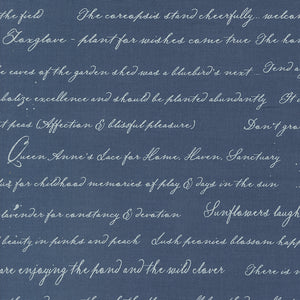 the field   The coreopsis stand cheerfully... welco
Foxglove - plant for wishes come true   The hon
e eaves of the garden shed was a bluebird's next...   Tend a
bolize excellence and should be planted abundantly
t peas (Affection & blissful pleasure)   Don't gra
Queen Anne's Lace for Home, Haven, Sanctuary
for childhood memories of play & days in the sun
lavender for constancy & devotion   Sunflowers laugh
beauty in pinks and peach   Lush peonies blossom happ
are enjoying the pond and the wild clover   There is